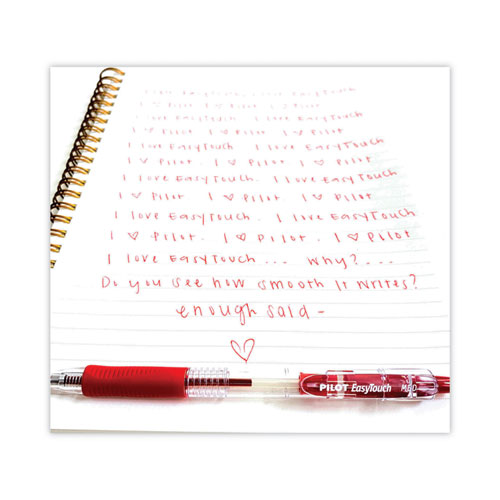 I love EasyTouch. I love EasyTouch
I ♡ Pilot. I ♡ Pilot. I ♡ Pilot
I love EasyTouch. I love EasyTouch
I ♡ Pilot. I ♡ Pilot. I ♡ Pilot
I love EasyTouch. I love EasyTouch
I ♡ Pilot. I ♡ Pilot. I ♡ Pilot
I love EasyTouch. I love EasyTouch
I ♡ Pilot. I ♡ Pilot. I ♡ Pilot
I love EasyTouch. I love EasyTouch
I ♡ Pilot. I ♡ Pilot. I ♡ Pilot
I love EasyTouch... Why?...
Do you see how smooth it writes?
enough said -
♡
PILOT EasyTouch MED